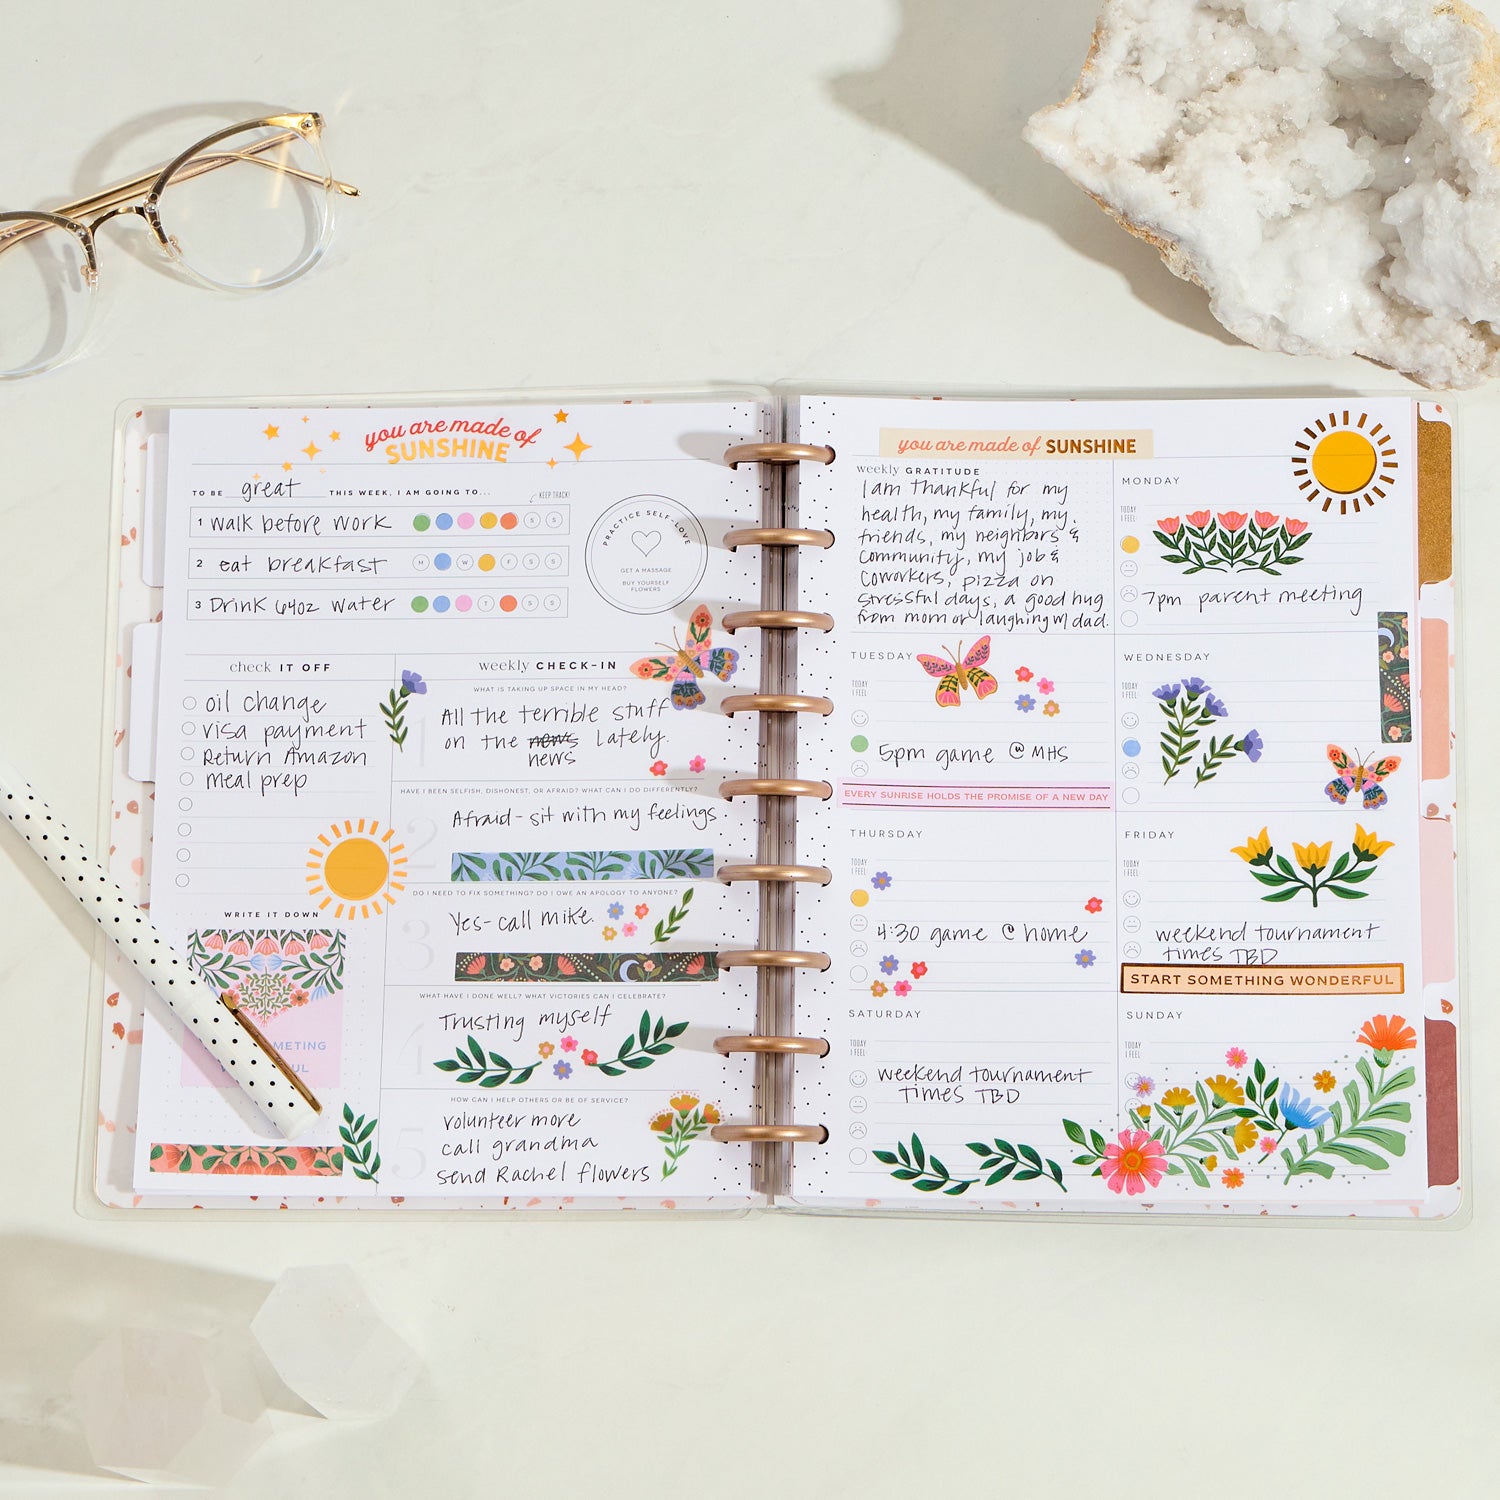 you are made of
SUNSHINE
TO BE great THIS WEEK, I AM GOING TO...
KEEP TRACK!
1 walk before work S S
2 eat breakfast M W F S S
3 Drink 64oz water T S S
PRACTICE SELF-LOVE
GET A MASSAGE
BUY YOURSELF
FLOWERS
check IT OFF
oil change
visa payment
Return Amazon
meal prep
WRITE IT DOWN
weekly CHECK-IN
WHAT IS TAKING UP SPACE IN MY HEAD?
1
All the terrible stuff
on the news lately.
news
HAVE I BEEN SELFISH, DISHONEST, OR AFRAID? WHAT CAN I DO DIFFERENTLY?
2
Afraid - sit with my feelings.
DO I NEED TO FIX SOMETHING? DO I OWE AN APOLOGY TO ANYONE?
3
Yes - call mike.
WHAT HAVE I DONE WELL? WHAT VICTORIES CAN I CELEBRATE?
4
Trusting myself
HOW CAN I HELP OTHERS OR BE OF SERVICE?
5
volunteer more
call grandma
send Rachel flowers
you are made of SUNSHINE
weekly GRATITUDE
I am thankful for my
health, my family, my
friends, my neighbors &
community, my job &
coworkers, pizza on
stressful days, a good hug
from mom or laughing w/ dad.
MONDAY
TODAY
I FEEL:
7pm parent meeting
TUESDAY
TODAY
I FEEL:
5pm game @ MHS
EVERY SUNRISE HOLDS THE PROMISE OF A NEW DAY
WEDNESDAY
TODAY
I FEEL:
THURSDAY
TODAY
I FEEL:
4:30 game @ home
FRIDAY
TODAY
I FEEL:
weekend tournament
times TBD
START SOMETHING WONDERFUL
SATURDAY
TODAY
I FEEL:
weekend tournament
times TBD
SUNDAY
TODAY
I FEEL: